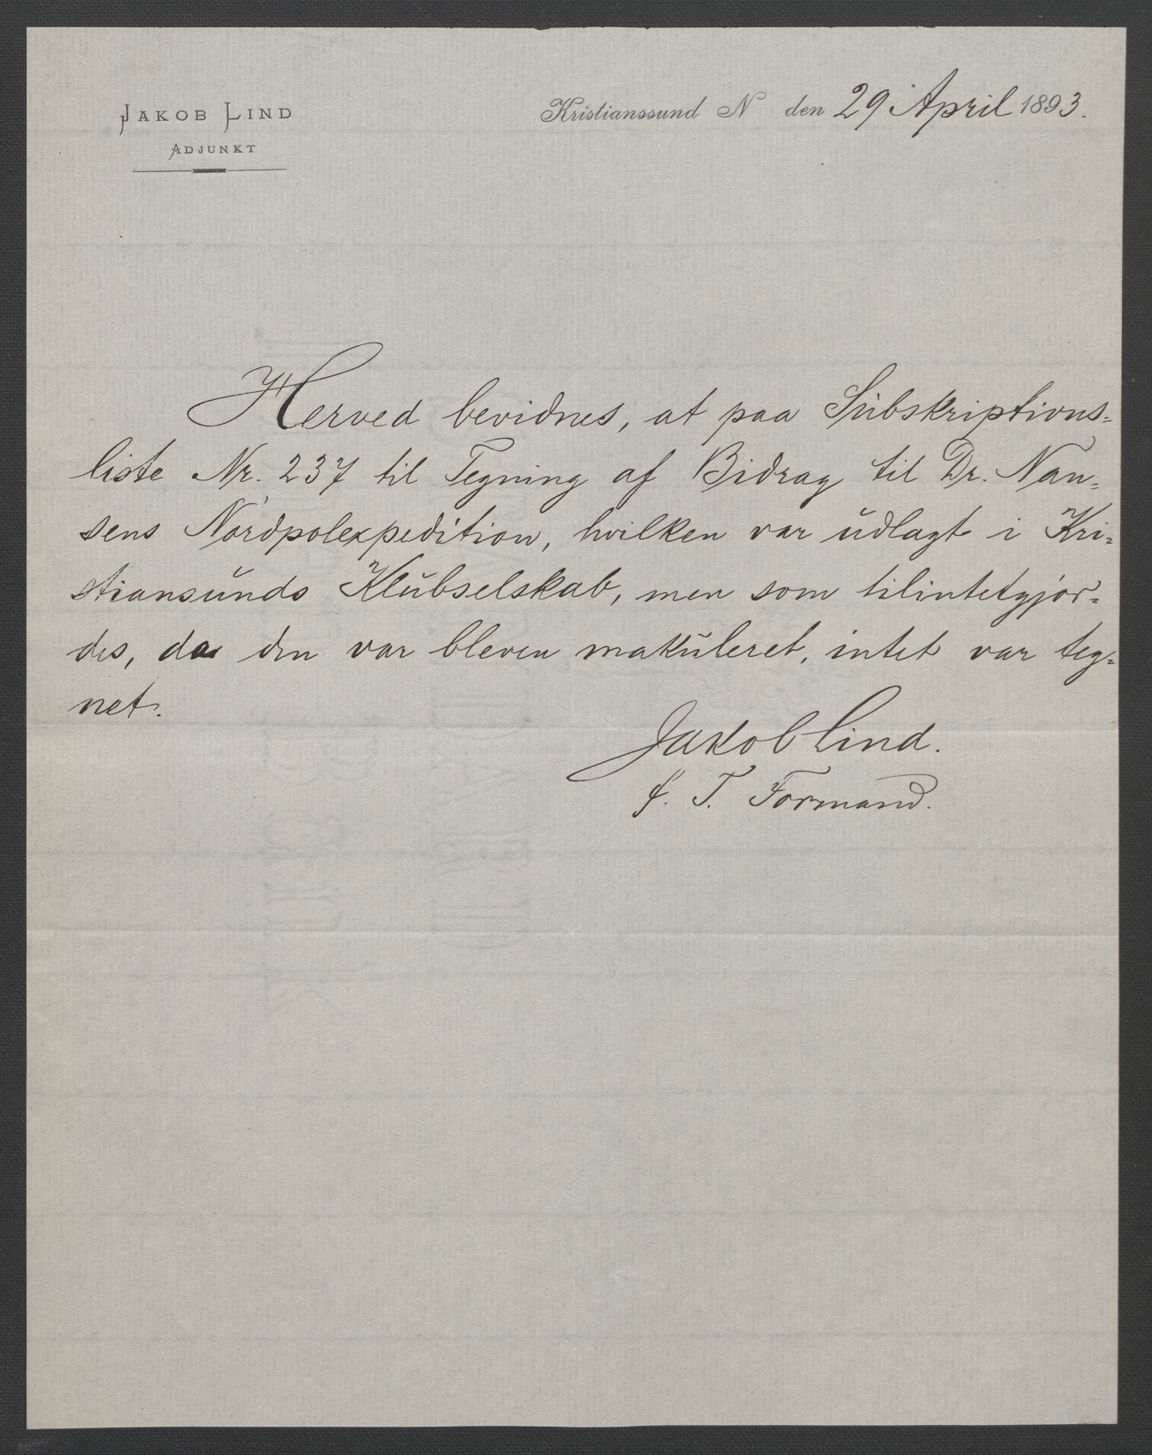 JAKOB LIND
ADJUNKT
Kristianssund N den 29 April 1893.
Herved bevidnes, at paa Subskriptions-
liste Nr. 237 til Tegning af Bidrag til Dr. Nan-
sens Nordpolexpedition, hvilken var udlagt i Kri-
stiansunds Klubselskab, men som tilintetgjor-
des, da den var bleven makuleret, intet var teg-
net.
Jakob Lind.
f. T. Formand.